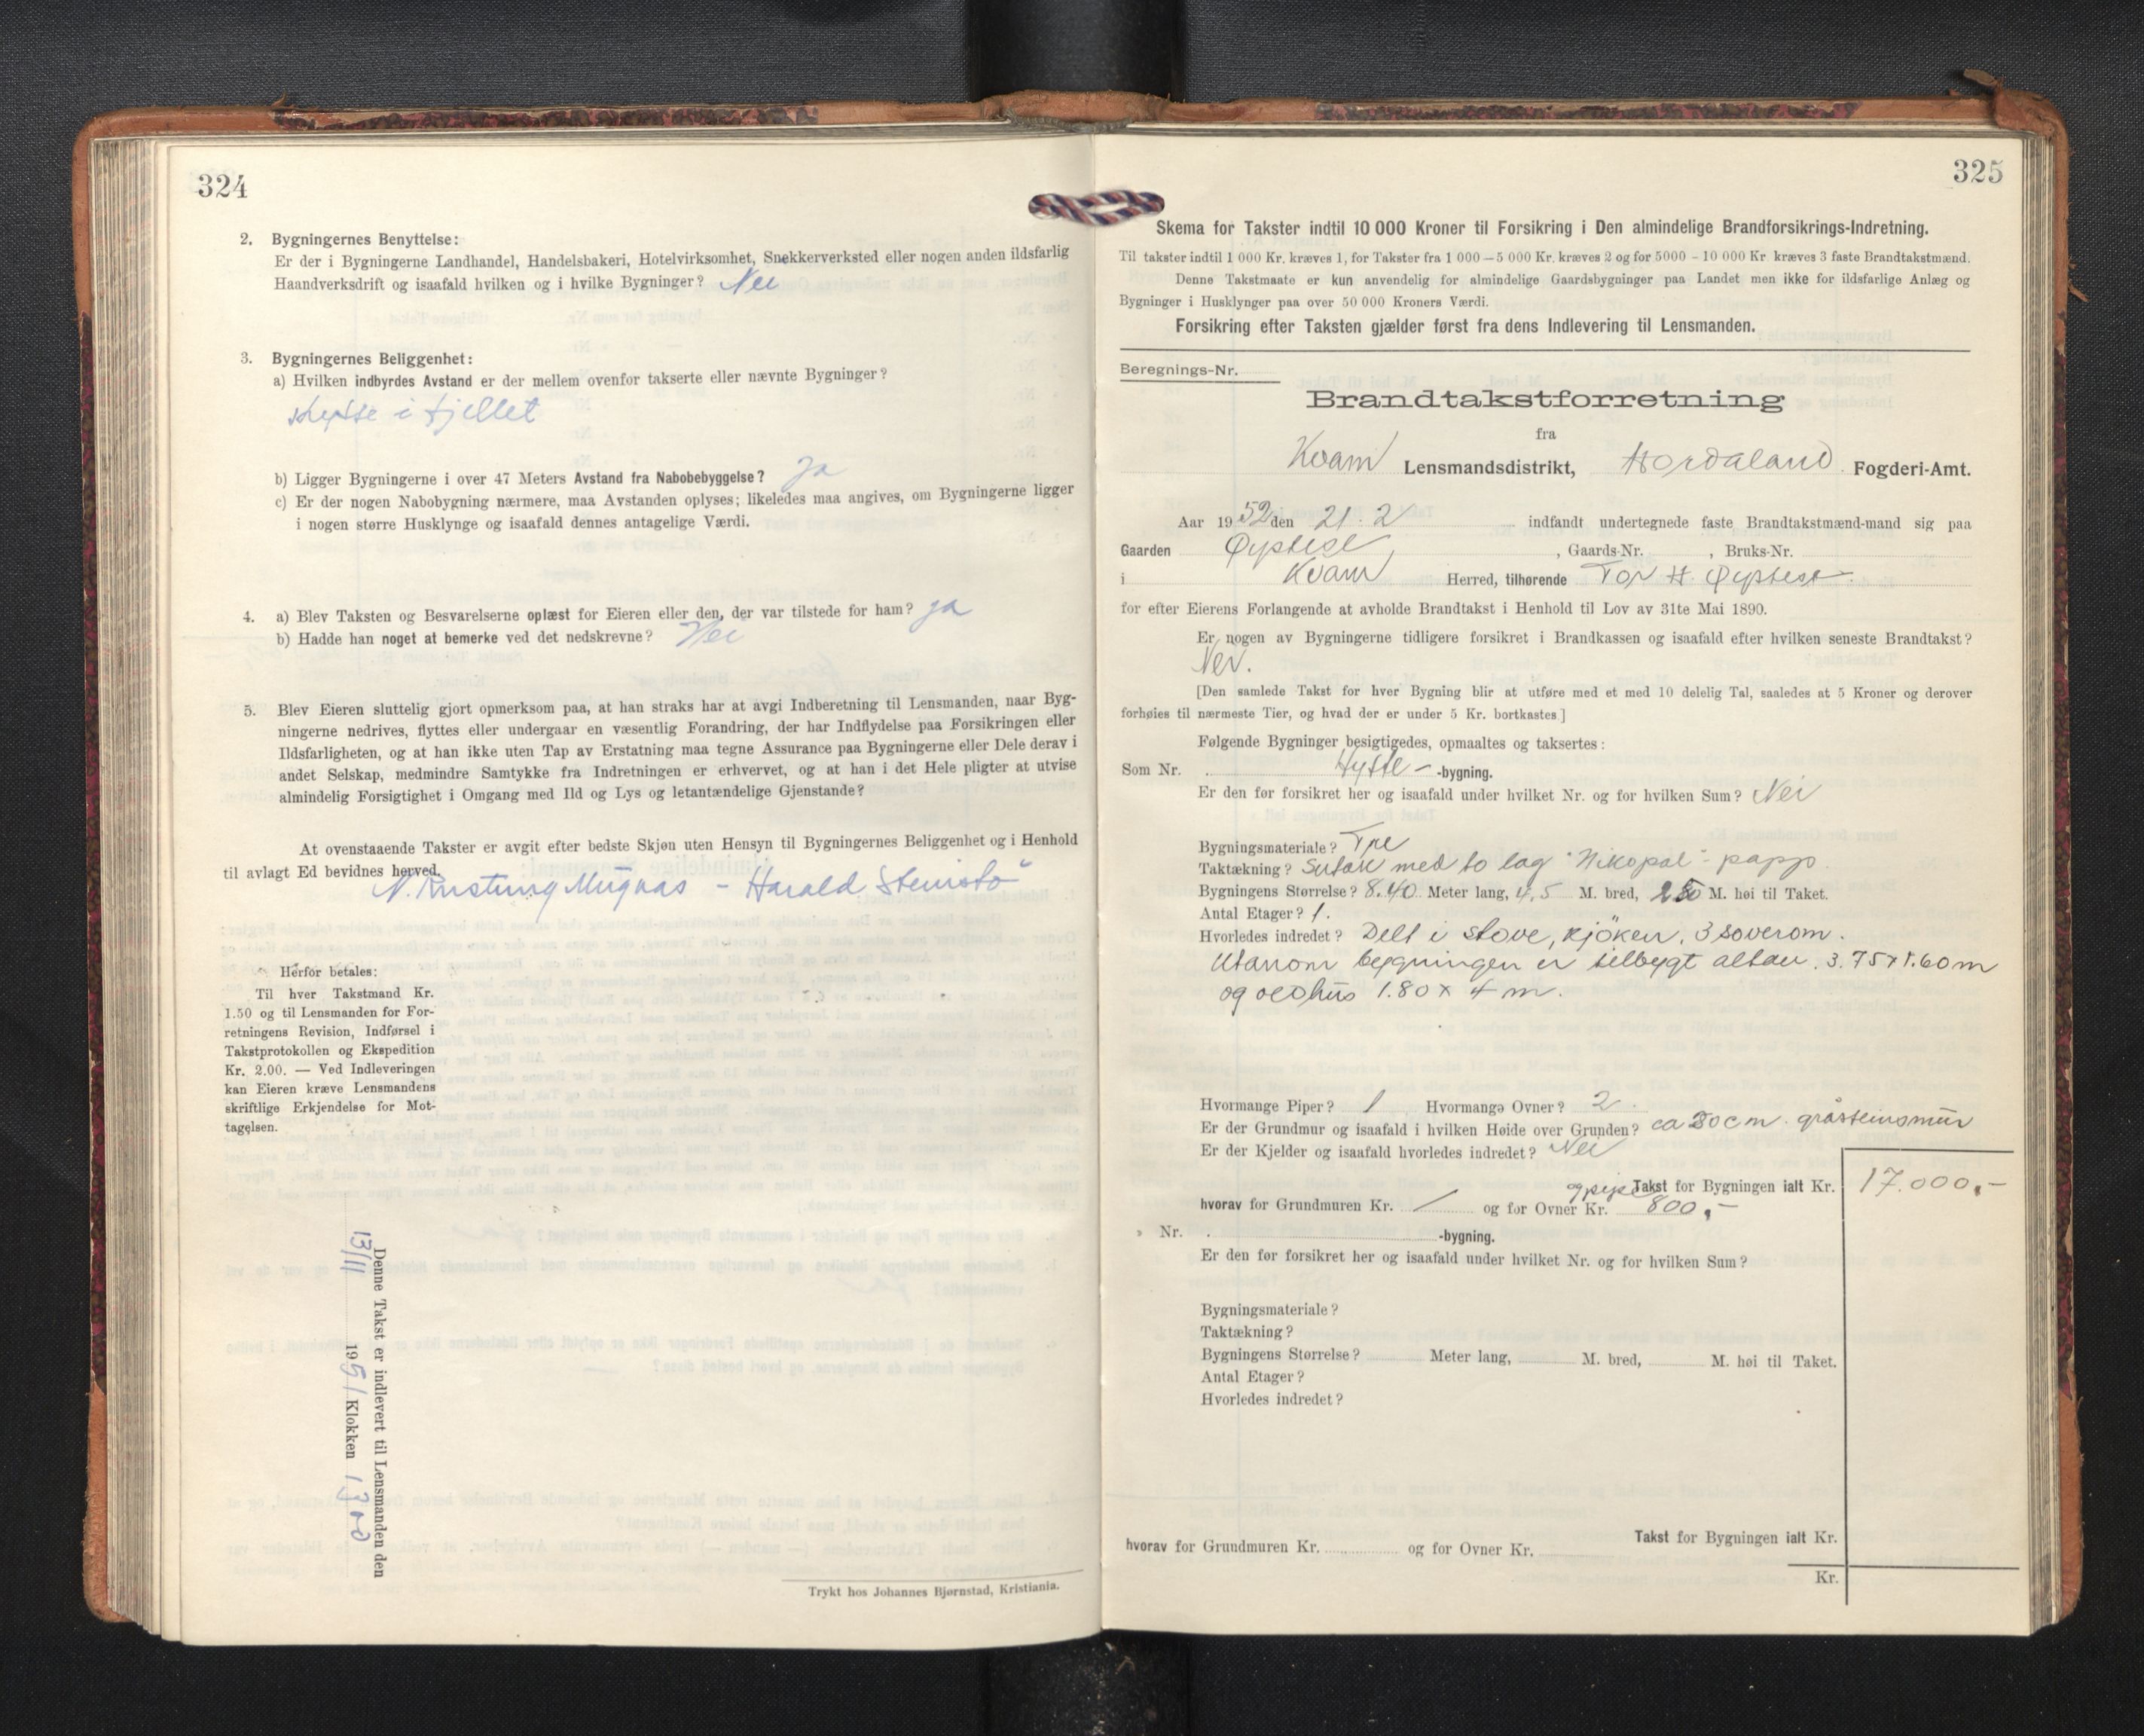 324
2. Bygningernes Benyttelse:
Er der i Bygningerne Landhandel, Handelsbakeri, Hotelvirksomhet, Snekkerverksted eller nogen anden ildsfarlig
Haandverksdrift og isaafald hvilken og i hvilke Bygninger? Nei
3. Bygningernes Beliggenhet:
a) Hvilken indbyrdes Avstand er der mellem ovenfor takserte eller nævnte Bygninger?
Hytte i fjellet
b) Ligger Bygningerne i over 47 Meters Avstand fra Nabobebyggelse? Ja
c) Er der nogen Nabobygning nærmere, maa Avstanden oplyses; likeledes maa angives, om Bygningerne ligger
i nogen større Husklynge og isaafald dennes antagelige Værdi.
4. a) Blev Taksten og Besvarelserne oplæst for Eieren eller den, der var tilstede for ham? ja
b) Hadde han noget at bemerke ved det nedskrevne? Nei
5. Blev Eieren sluttelig gjort opmerksom paa, at han straks har at avgi Indberetning til Lensmanden, naar Byg-
ningerne nedrives, flyttes eller undergaar en væsentlig Forandring, der har Indflydelse paa Forsikringen eller
Ildsfarligheten, og at han ikke uten Tap av Erstatning maa tegne Assurance paa Bygningerne eller Dele derav i
andet Selskap, medmindre Samtykke fra Indretningen er erhvervet, og at han i det Hele pligter at utvise
almindelig Forsigtighet i Omgang med Ild og Lys og letantændelige Gjenstande?
At ovenstaaende Takster er avgit efter bedste Skjøn uten Hensyn til Bygningernes Beliggenhet og i Henhold
til avlagt Ed bevidnes herved.
N. Mugnas - Harald Steinstö
Herfor betales:
Til hver Takstmand Kr.
1.50 og til Lensmanden for For-
retningens Revision, Indførsel i
Takstprotokollen og Ekspedition
Kr. 2.00. — Ved Indleveringen
kan Eieren kræve Lensmandens
skriftlige Erkjendelse for Mot-
tagelsen.
Denne Takst er indlevert til Lensmanden den
13/11 1951 Klokken 13 00
Trykt hos Johannes Bjørnstad, Kristiania.
325
Skema for Takster indtil 10 000 Kroner til Forsikring i Den almindelige Brandforsikrings-Indretning.
Til takster indtil 1 000 Kr. kræves 1, for Takster fra 1 000 — 5 000 Kr. kræves 2 og for 5000 - 10 000 Kr. kræves 3 faste Brandtakstmænd.
Denne Takstmaate er kun anvendelig for almindelige Gaardsbygninger paa Landet men ikke for ildsfarlige Anlæg og
Bygninger i Husklynger paa over 50 000 Kroners Værdi.
Forsikring efter Taksten gjælder først fra dens Indlevering til Lensmanden.
Beregnings-Nr.
Brandtakstforretning
fra
Kvam Lensmandsdistrikt, Hordaland Fogderi-Amt.
Aar 1952 den 21. 2 indfandt undertegnede faste Brandtakstmænd-mand sig paa
Gaarden Øystese, , Gaards-Nr. , Bruks-Nr.
i Kvam Herred, tilhørende Tor H. Øystese
for efter Eierens Forlangende at avholde Brandtakst i Henhold til Lov av 31te Mai 1890.
Er nogen av Bygningerne tidligere forsikret i Brandkassen og isaafald efter hvilken seneste Brandtakst?
Nei.
[Den samlede Takst for hver Bygning blir at utføre med et med 10 delelig Tal, saaledes at 5 Kroner og derover
forhøies til nærmeste Tier, og hvad der er under 5 Kr. bortkastes]
Følgende Bygninger besigtigedes, opmaaltes og taksertes:
Som Nr. Hytte- -bygning.
Er den før forsikret her og isaafald under hvilket Nr. og for hvilken Sum? Nei
Bygningsmateriale? Tre
Taktækning? Sutak med to lag "Nikopal"- papp.
Bygningens Størrelse? 8.40 Meter lang, 4,5 M. bred, M. høi til Taket.
Antal Etager? 1.
Hvorledes indredet? Delt i stove, kjöken, 3 soverom.
Utanom bygningen er tilbygt altan. 3.75 x 1.60 m
og vedhus 1.80 x 4 m.
Hvormange Piper? 1 Hvormange Ovner? 2
Er der Grundmur og isaafald i hvilken Høide over Grunden? ca 20 cm. gråsteinsmur
Er der Kjelder og isaafald hvorledes indredet? Nei
og pipe Takst for Bygningen ialt Kr. 17.000,-
hvorav for Grundmuren Kr. / og for Ovner Kr. 800,-
" Nr. -bygning.
Er den før forsikret her og isaafald under hvilket Nr. og for hvilken Sum?
Bygningsmateriale?
Taktækning?
Bygningens Størrelse? Meter lang, M. bred, M. høi til Taket.
Antal Etager?
Hvorledes indredet?
Takst for Bygningen ialt Kr.
hvorav for Grundmuren Kr. og for Ovner Kr.
Kr.